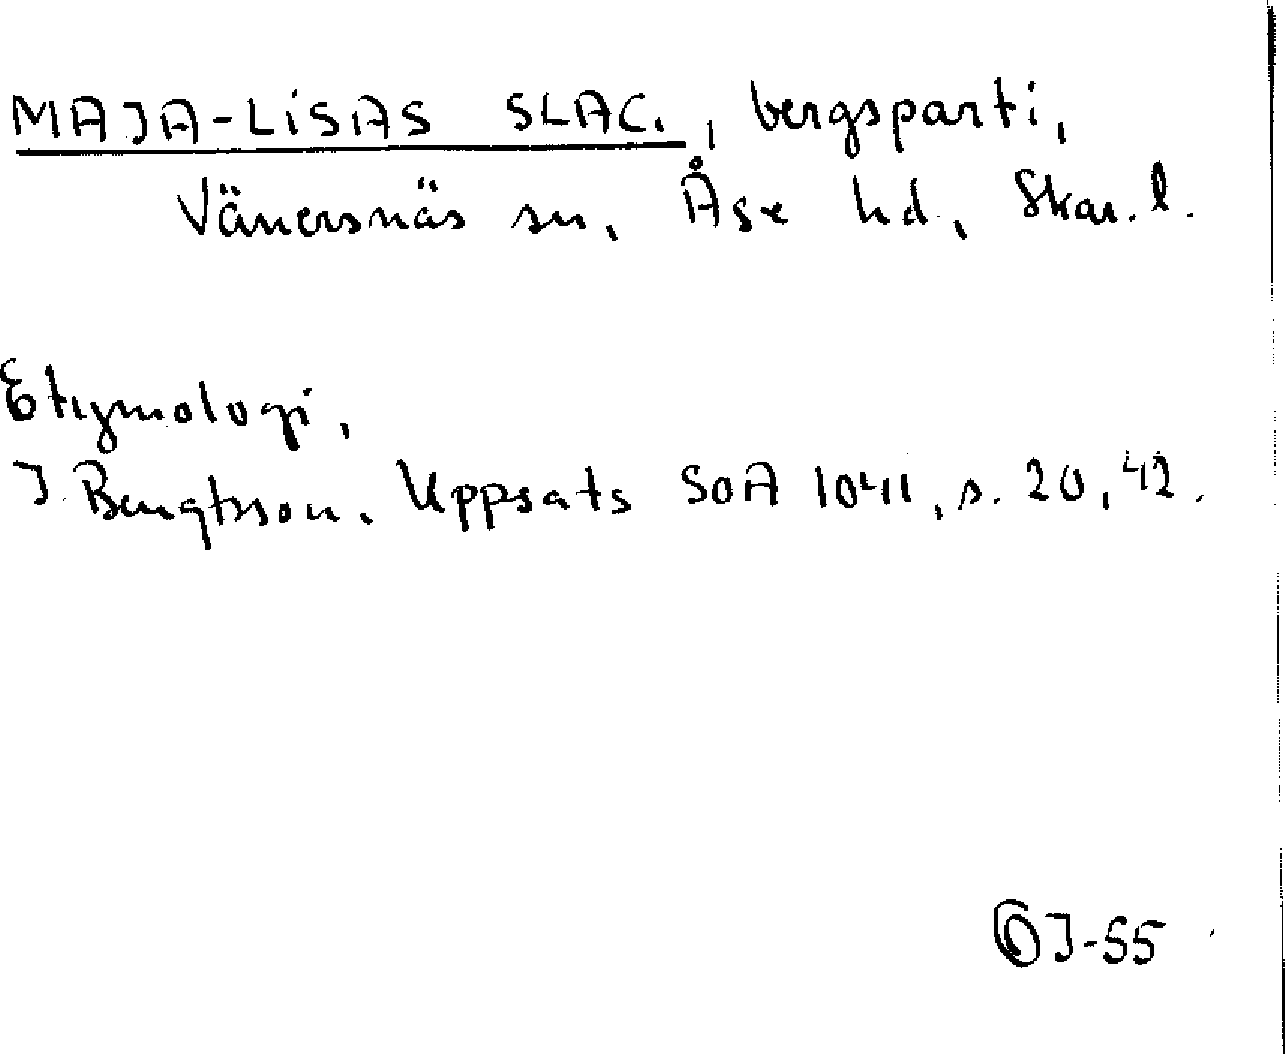 MAJA-LISAS SLAC., bergsparti,
Vänersnäs sn, Åse hd, Skar. l.
Etymologi,
J. Bengtsson. Uppsats SOA 1041, s. 20, 42.
J-55